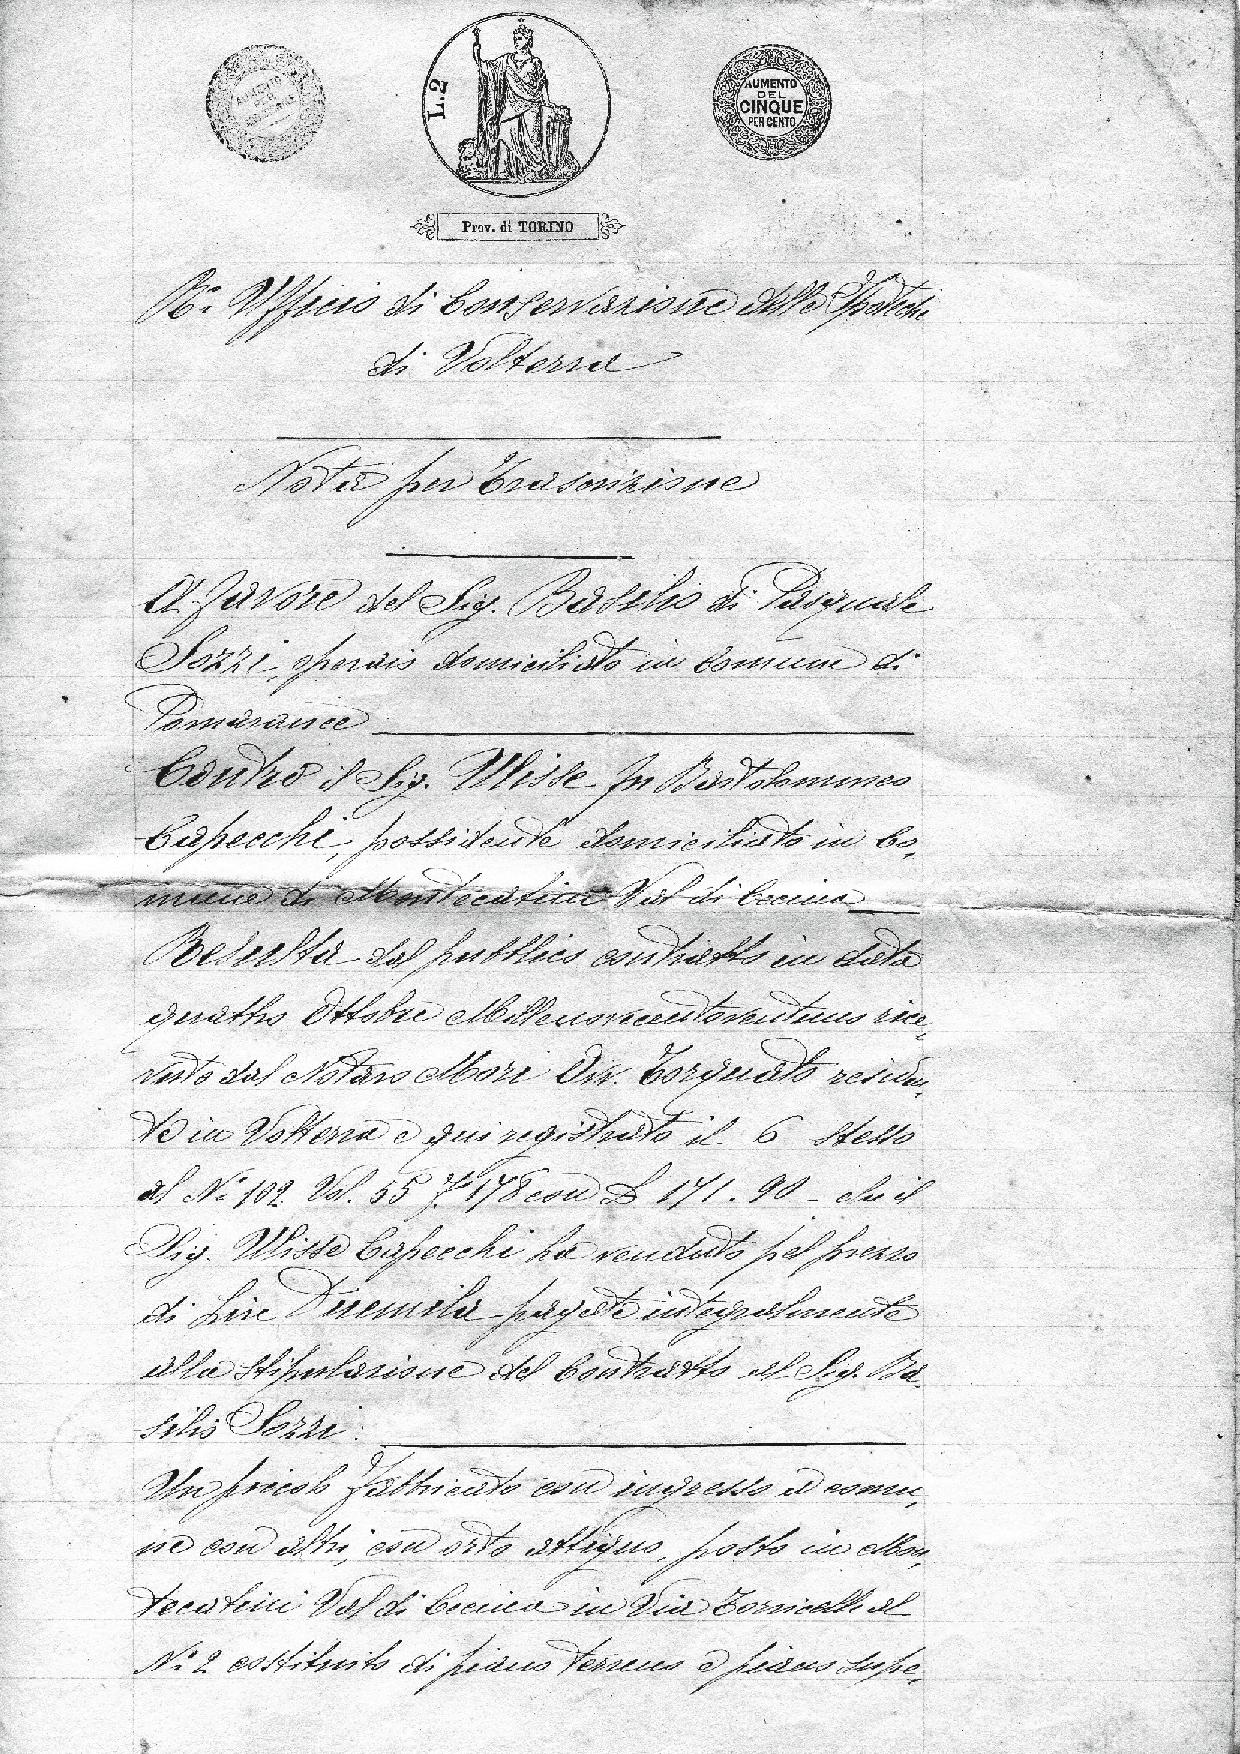 L.2
AUMENTO
DEL
CINQUE
PER CENTO
Prov. di TORINO
R.° Ufficio di Conservazione delle Ipoteche
di Volterra
Nota per Trascrizione
A favore del Sig. Basilio di Pasquale
Sozzi, operaio domiciliato in Comune di
Pomarance
Contro il Sig. Ulisse fu Bartolommeo
Capecchi, possidente domiciliato in Co,
mune di Montecatini Val di Cecina
Resulta dal pubblico contratto in data
quattro Ottobre Millenovecentoventuno rice,
vuto dal Notaro Mori Dr. Torquato residen,
te in Volterra e qui registrato il 6 stesso
al N.° 102 Vol. 55 f.° 178 con L 171.90 - che il
Sig. Ulisse Capecchi ha venduto pel prezzo
di Lire Duemila pagate integralmente
alla stipulazione del Contratto al Sig. Ba,
silio Sozzi:
Un piccolo fabbricato con ingresso a comu,
ne con altri, con orto attiguo, posto in Mon,
tecatini Val di Cecina in Via Torricelle al
N.° 2 costituito di piano terreno e piano supe,